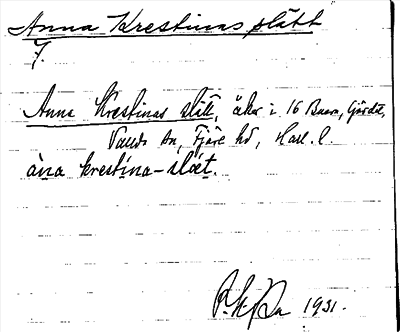 Anna Krestinas slätt
7.
Anna Krestinas slätt, åker i 16 Buarn, Gärdet,
Fjäre hd, Hall. l.
àna krestína-slæt.
1931.